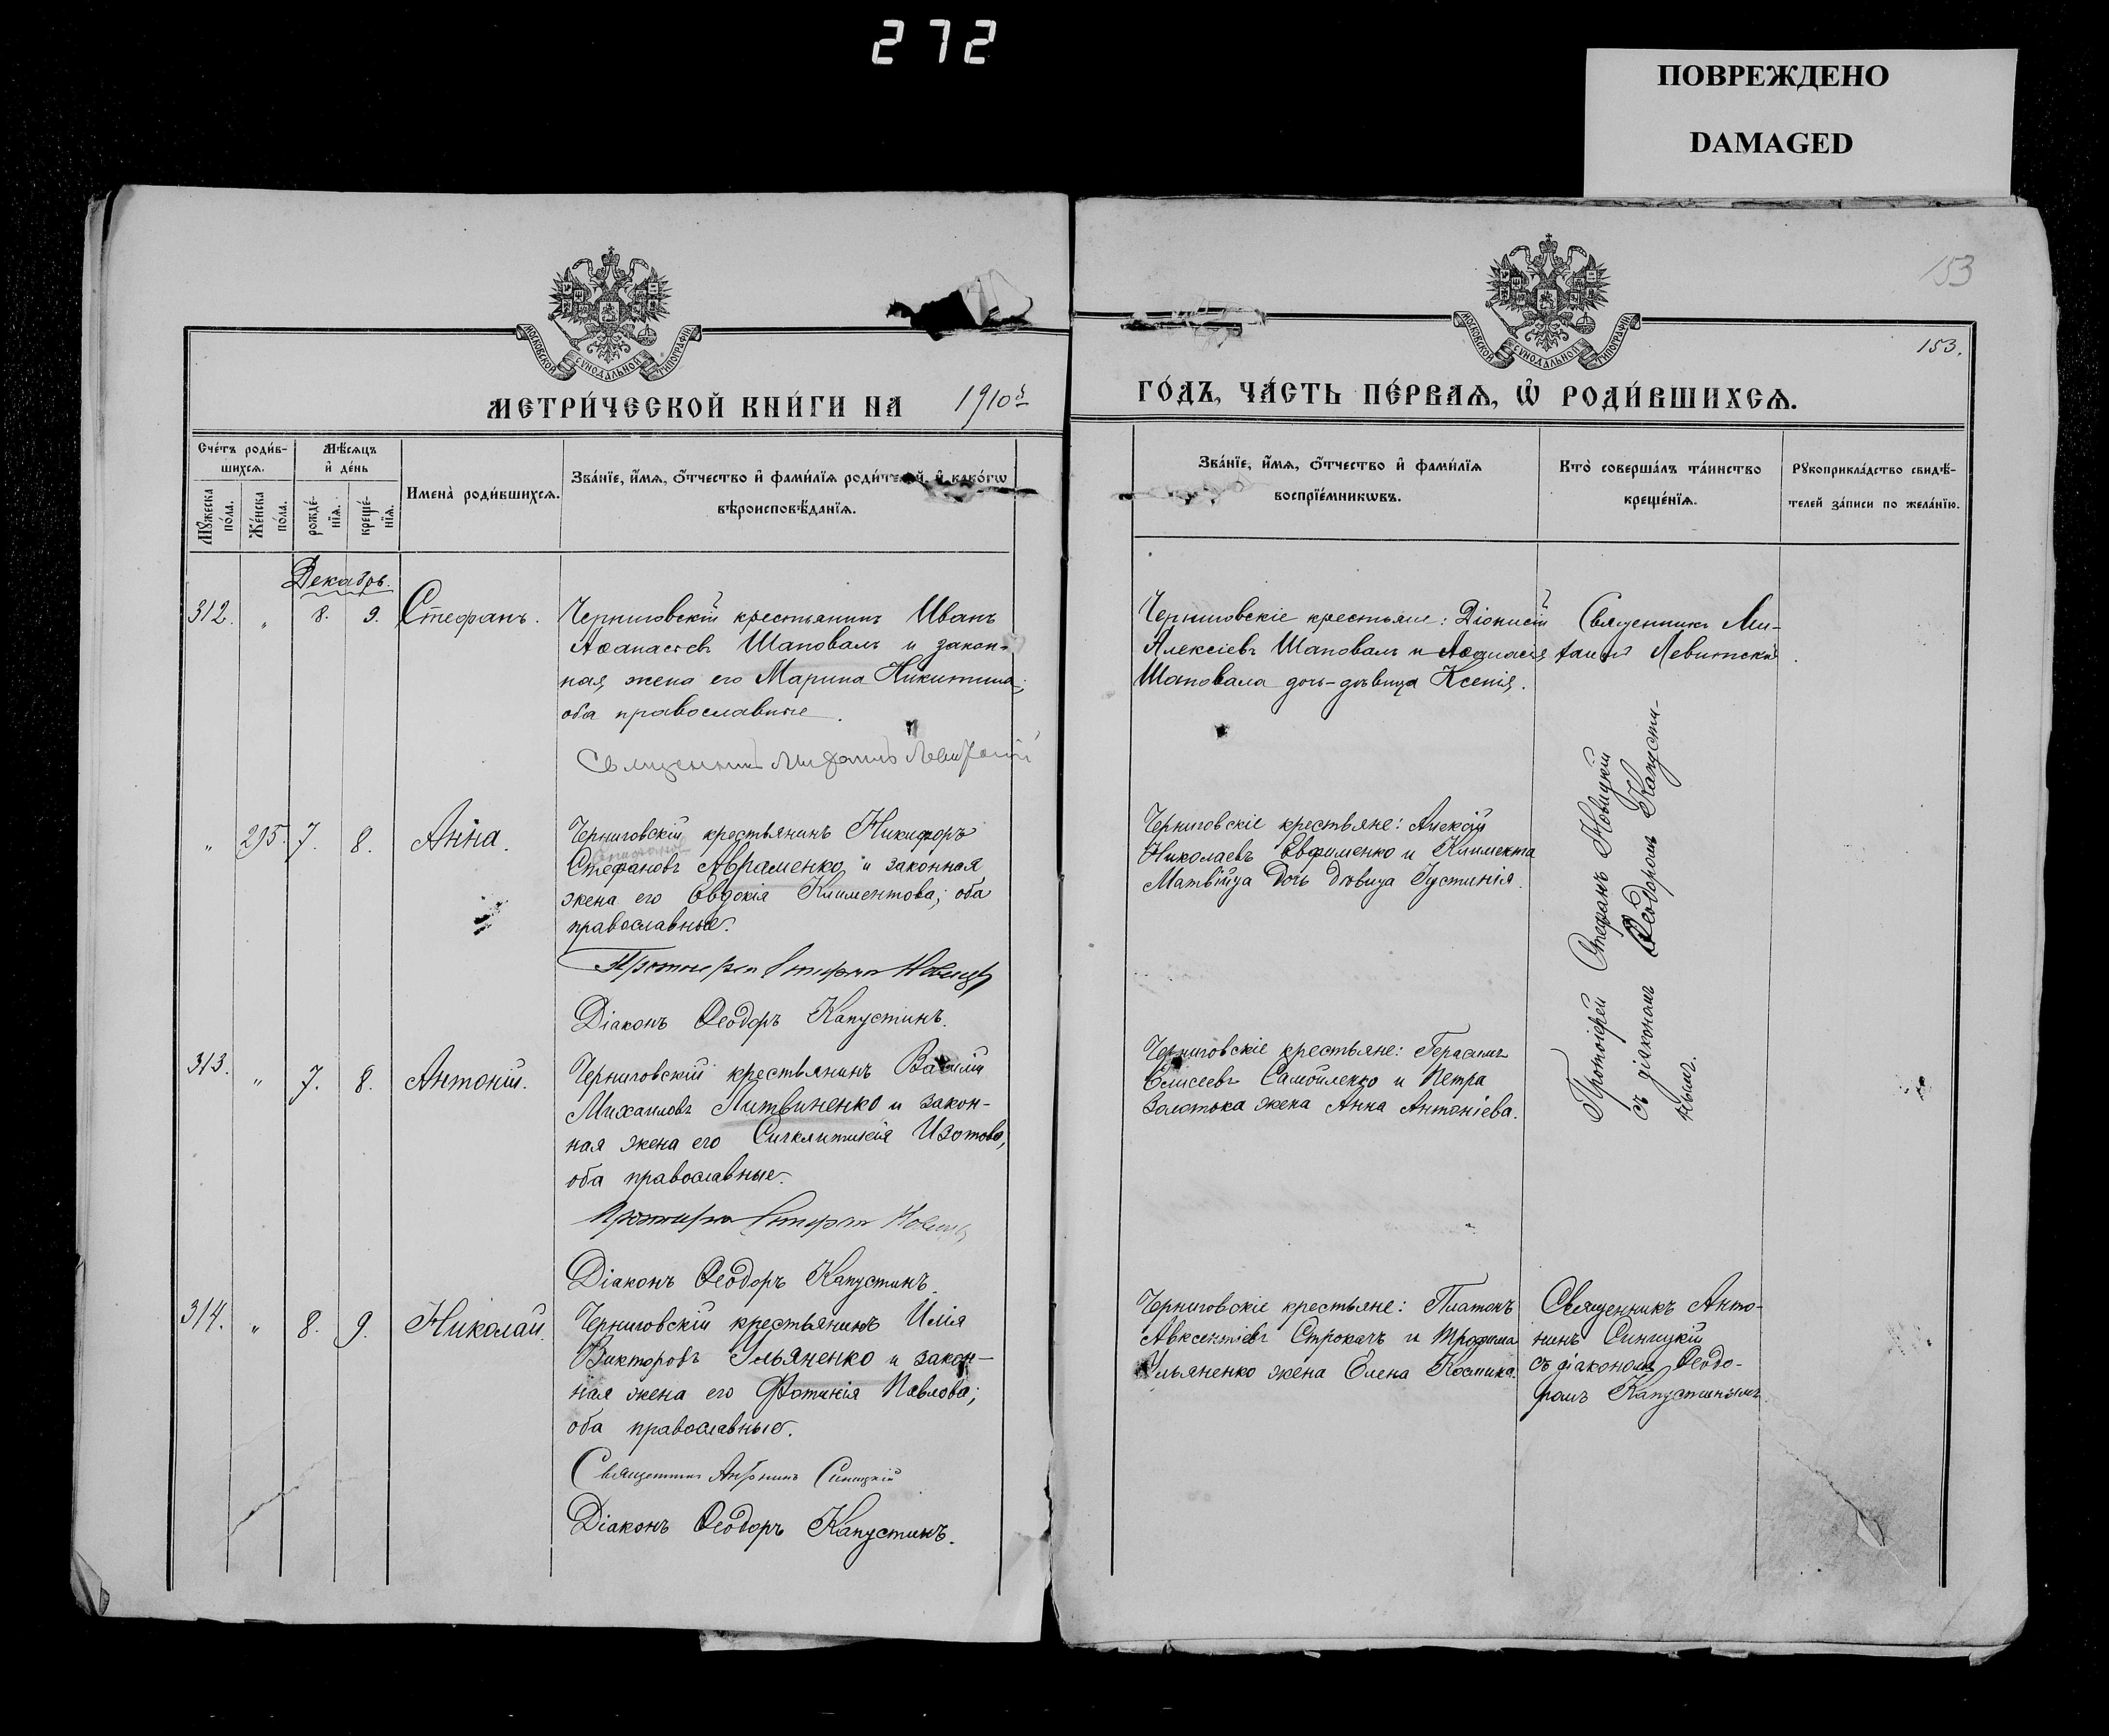 272
ПОВРЕЖДЕНО
DAMAGED
153
153.
МОСКОВСКОЙ СѴНОДАЛЬНОЙ ТИПОГРАФІИ
МОСКОВСКОЙ СѴНОДАЛЬНОЙ ТИПОГРАФІИ
МЕТРИ́ЧЕСКОЙ КНИ́ГИ НА 1910й
ГО́ДЪ, ЧА́СТЬ ПЕ́РВАѦ, Ѽ РОДИ́ВШИХСѦ.
Сче́тъ роди́в-
шихсѧ.
Мѣ́сѧцъ
и҆ де́нь
Мꙋ́жеска
по́ла.
Же́нска
по́ла.
рожде́-
нїѧ.
креще́-
нїѧ.
Имена̀ роди́вшихсѧ.
Зва́нїе, и҆́мѧ, ѻ҆́тчество и҆ фами́лїѧ роди́телей, и҆ како́гѡ
вѣроисповѣ́данїѧ.
Зва́нїе, и҆́мѧ, ѻ҆́тчество и҆ фами́лїѧ
воспрїе́мникѡвъ.
Кто̀ соверша́лъ та́инство
креще́нїѧ.
Рꙋкоприкла́дство свидѣ́-
телей за́писи по жела́нїю.
Декабрь.
312. „ 8. 9. Стефанъ.
Черниговскій крестьянинъ Иванъ
Аѳанасіевъ Шаповалъ и закон-
ная жена его Марина Никитина;
оба православные.
Священникъ Митаилъ Левитскій
Черниговскіе крестьяне: Діонисій
Алексіевъ Шаповалъ и Аѳанасія
Шаповала дочь-дѣвица Ксенія.
Священникъ Ми-
Левитскій
„ 295. 7. 8. Анна.
Черниговскій крестьянинъ Никифоръ
Стефановъ Авраменко и законная
жена его Евдокія Климентова; оба
православные.
Протоіерей Стефанъ Новицкій
Діаконъ Ѳеодоръ Капустинъ.
Черниговскіе крестьяне: Алексій
Николаевъ Евфименко и Климента
Матвійца дочь дѣвица Іустинія.
Протоіерей Стефанъ Новицкій
съ діакономъ Ѳеодоромъ Капусти-
нымъ.
313. „ 7. 8. Антоній.
Черниговскій крестьянинъ Василій
Михаиловъ Литвиненко и закон-
ная жена его Синклитикія Изотова;
оба православные.
Протоіерей Стефанъ Новицкій
Діаконъ Ѳеодоръ Капустинъ.
Черниговскіе крестьяне: Герасимъ
Елисеевъ Самойленко и Петра
Золотока жена Анна Антоніева.
314. „ 8. 9. Николай.
Черниговскій крестьянинъ Илія
Викторовъ Ульяненко и закон-
ная жена его Фотинія Павлова;
оба православные.
Священникъ Антонинъ Синицкій
Діаконъ Ѳеодоръ Капустинъ.
Черниговскіе крестьяне: Платонъ
Авксентіевъ Строкачъ и Трофима
Ульяненко жена Елена Космина.
Священникъ Анто-
нинъ Синицкій
съ діакономъ Ѳеодо-
ромъ Капустинымъ.